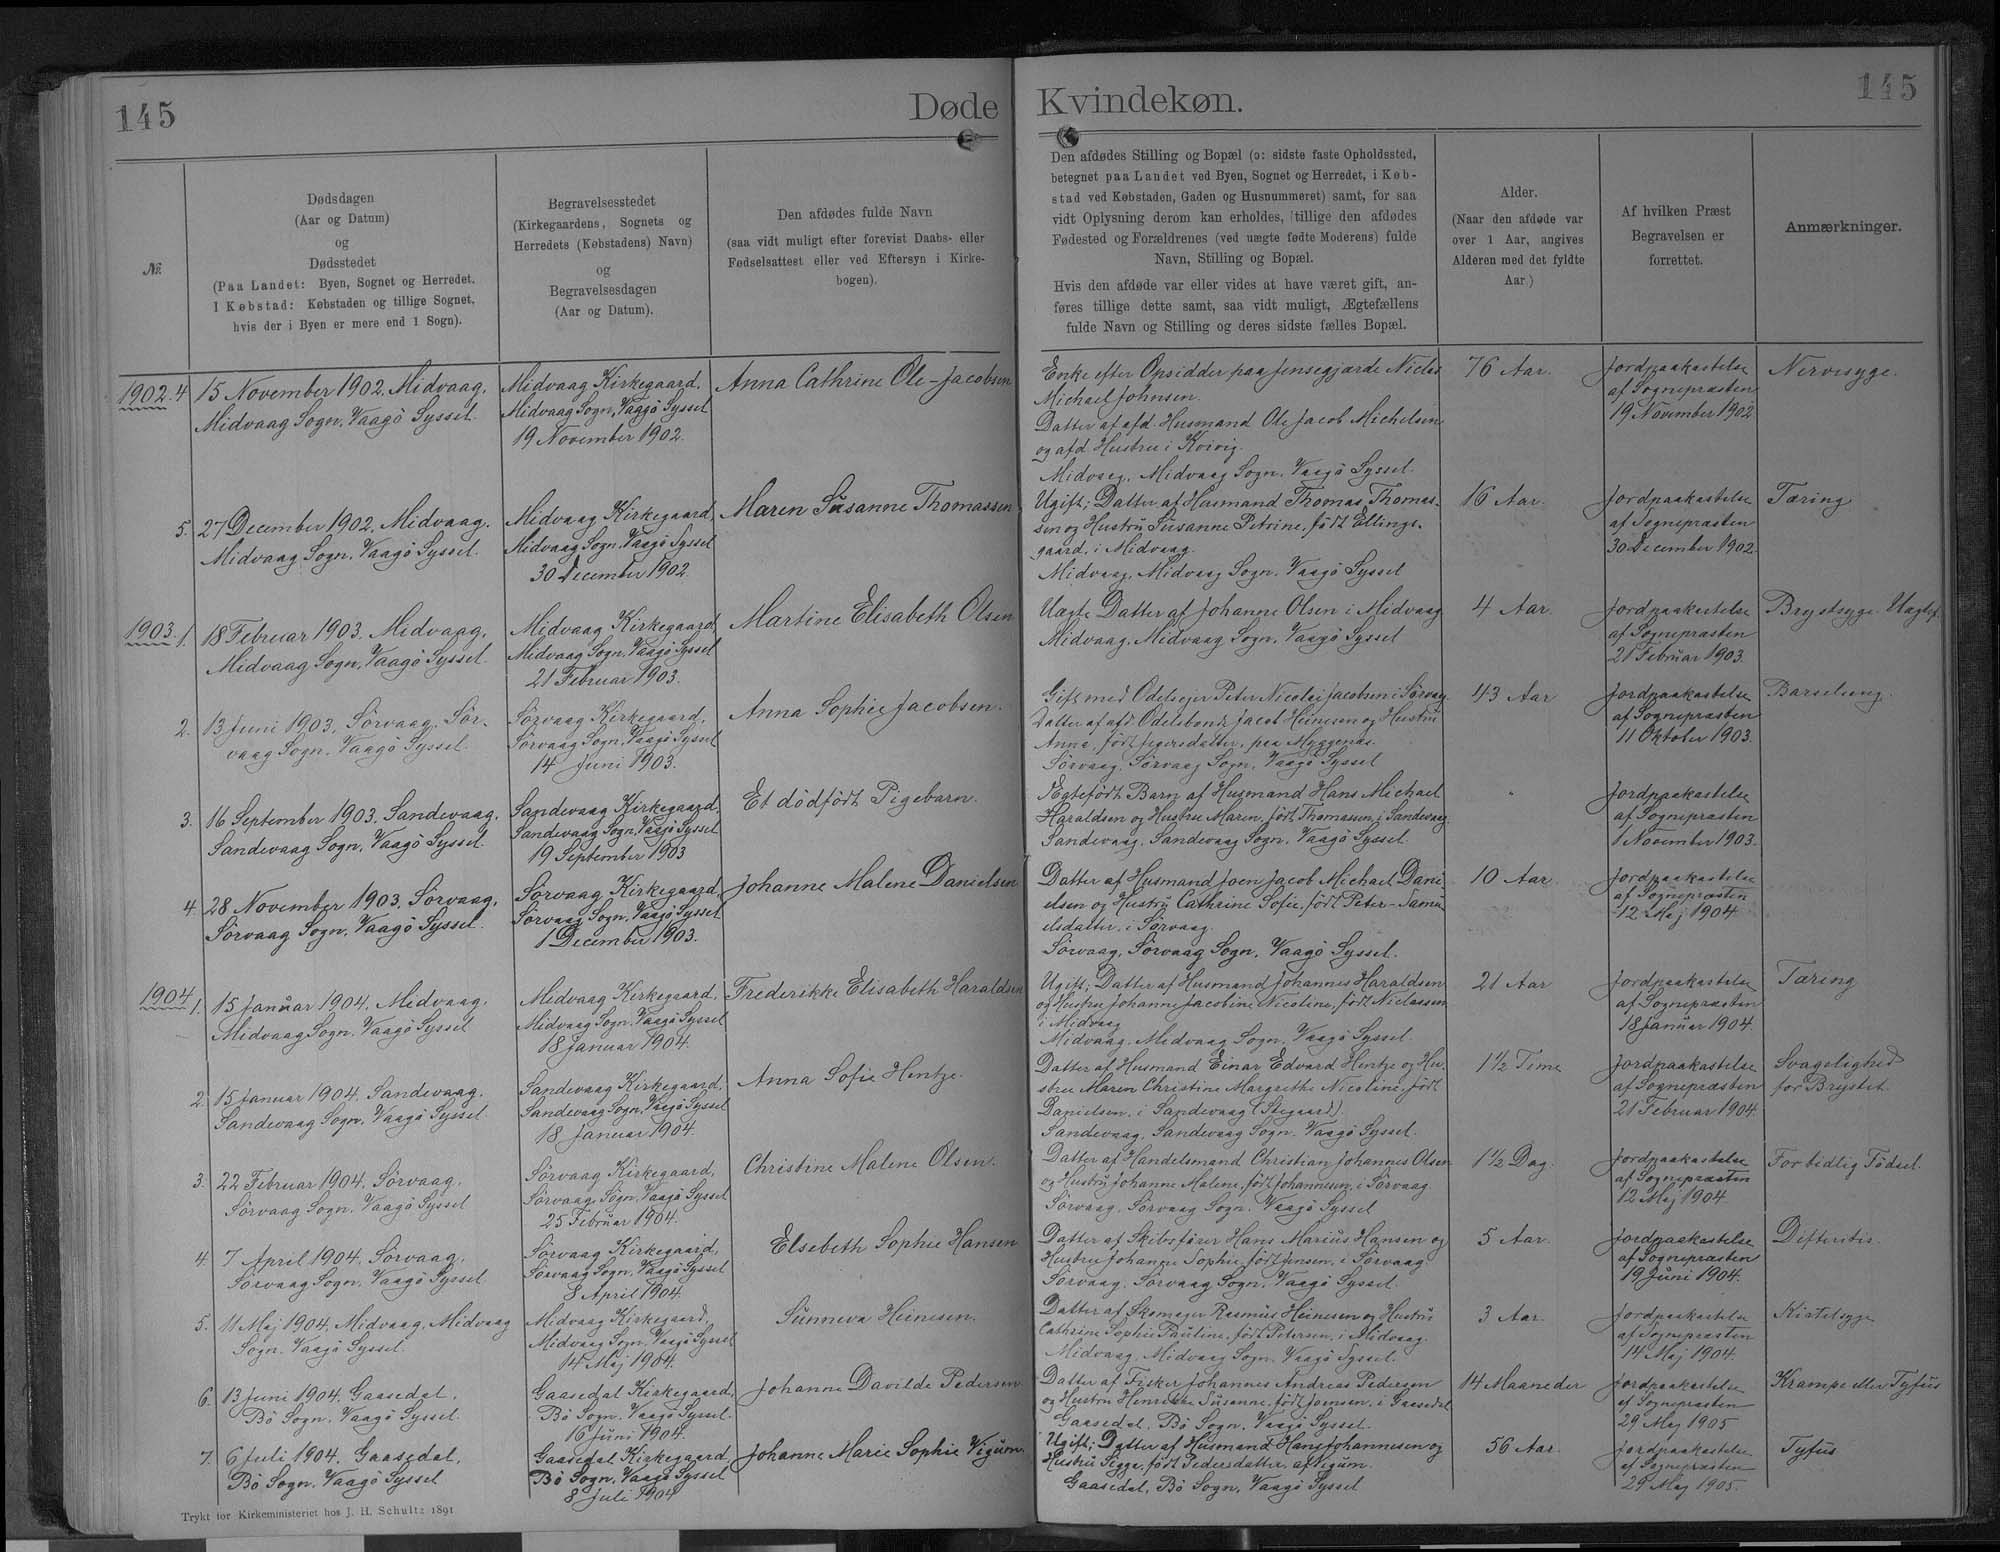 145
Døde
Kvindekøn.
145
№
Dødsdagen
(Aar og Datum)
og
Dødsstedet
(Paa Landet: Byen, Sognet og Herredet.
I Købstad: Købstaden og tillige Sognet,
hvis der i Byen er mere end 1 Sogn).
Begravelsesstedet
(Kirkegaardens, Sognets og
Herredets (Købstadens) Navn)
og
Begravelsesdagen
(Aar og Datum).
Den afdødes fulde Navn
(saa vidt muligt efter forevist Daabs- eller
Fødselsattest eller ved Eftersyn i Kirke-
bogen).
Den afdødes Stilling og Bopæl (ɔ: sidste faste Opholdssted,
betegnet paa Landet ved Byen, Sognet og Herredet, i Køb-
stad ved Købstaden, Gaden og Husnummeret) samt, for saa
vidt Oplysning derom kan erholdes, tillige den afdødes
Fødested og Forældrenes (ved uægte fødte Moderens) fulde
Navn, Stilling og Bopæl.
Hvis den afdøde var eller vides at have været gift, an-
føres tillige dette samt, saa vidt muligt, Ægtefællens
fulde Navn og Stilling og deres sidste fælles Bopæl.
Alder.
(Naar den afdøde var
over 1 Aar, angives
Alderen med det fyldte
Aar)
Af hvilken Præst
Begravelsen er
forrettet.
Anmærkninger.
1902. 4
15 November 1902. Midvaag,
Midvaag Sogn, Vaagö Syssel.
Midvaag Kirkegaard,
Midvaag Sogn, Vaagö Syssel
19 November 1902.
Anna Cathrine Ole-Jacobsen
Enke efter Opsidder paa Jensegjærde Niclas
Michael Johnsen.
Datter af afd. Husmand Ole Jacob Michelsen
og afd. Hustru i Kvivig.
Midvaag, Midvaag Sogn, Vaagö Syssel.
76 Aar.
Jordpaakastelse
af Sognepræsten
19 November 1902
Nervesyge.
5.
27 December 1902. Midvaag.
Midvaag Sogn, Vaagö Syssel.
Midvaag Kirkegaard,
Midvaag Sogn, Vaagö Syssel
30 December 1902.
Maren Susanne Thomassen
Ugift; Datter af Husmand Thomas Thomas-
sen og Hustru Susanne Petrine, født Ellings-
gaard, i Midvaag.
Midvaag, Midvaag Sogn, Vaagö Syssel
16 Aar.
Jordpaakastelse
af Sognepræsten
30 December 1902.
Tæring
1903. 1.
18 Februar 1903. Midvaag,
Midvaag Sogn, Vaagö Syssel.
Midvaag Kirkegaard,
Midvaag Sogn, Vaagö Syssel
21 Februar 1903.
Martine Elisabeth Olsen
Uægte Datter af Johanne Olsen i Midvaag
Midvaag, Midvaag Sogn, Vaagö Syssel
4 Aar.
Jordpaakastelse
af Sognepræsten
21 Februar 1903.
Brystsyge.
2.
13 Juni 1903. Sörvaag, Sör-
vaag Sogn, Vaagö Syssel.
Sörvaag Kirkegaard,
Sörvaag Sogn, Vaagö Syssel
14 Juni 1903.
Anna Sophie Jacobsen.
Gift med Odelsejer Peter Nicolai Jacobsen i Sörvaag
Datter af afd. Odelsbonde Jacob Heinesen og Hustru
Anna, født Jegersdatter, paa Myggenæs.
Sörvaag, Sörvaag Sogn, Vaagö Syssel
43 Aar
Jordpaakastelse
af Sognepræsten
11 Oktober 1903.
Barselseng.
3.
16 September 1903. Sandevaag,
Sandevaag Sogn, Vaagö Syssel.
Sandevaag Kirkegaard,
Sandevaag Sogn, Vaagö Syssel
19 September 1903
Et dödfödt Pigebarn.
Ægtefödt Barn af Husmand Hans Michael
Haraldsen og Hustru Maren, født Thomasen, i Sandevaag.
Sandevaag, Sandevaag Sogn, Vaagö Syssel.
"
Jordpaakastelse
af Sognepræsten
1 November 1903.
4.
28 November 1903. Sörvaag,
Sörvaag Sogn, Vaagö Syssel.
Sörvaag Kirkegaard,
Sörvaag Sogn, Vaagö Syssel
1 December 1903.
Johanne Malene Danielsen
Datter af Husmand Joen Jacob Michael Dani-
elsen og Hustru Cathrine Sofie, født Peter-Samu-
elsdatter, i Sörvaag.
Sörvaag, Sörvaag Sogn, Vaagö Syssel.
10 Aar.
Jordpaakastelse
af Sognepræsten
12 Maj 1904
1904 1.
15 Januar 1904. Midvaag,
Midvaag Sogn, Vaagö Syssel
Midvaag Kirkegaard,
Midvaag Sogn, Vaagö Syssel
18 Januar 1904.
Frederikke Elisabeth Haraldsen
Ugift; Datter af Husmand Johannes Haraldsen
og Hustru Johanne Jacobine Nicoline, født Niclassen
i Midvaag
Midvaag, Midvaag Sogn, Vaagö Syssel.
21 Aar
Jordpaakastelse
af Sognepræsten
18 Januar 1904.
Tæring
2.
15 Januar 1904. Sandevaag,
Sandevaag Sogn, Vaagö Syssel.
Sandevaag Kirkegaard,
Sandevaag Sogn, Vaagö Syssel
18 Januar 1904.
Anna Sofie Hentze.
Datter af Husmand Einar Edvard Hentze og Hu-
stru Maren Christine Margrethe Nicoline, født
Danielsen, i Sandevaag (Stegaard).
Sandevaag, Sandevaag Sogn, Vaagö Syssel.
1½ Time
Jordpaakastelse
af Sognepræsten
21 Februar 1904
Svagelighed
for Brystet.
3.
22 Februar 1904. Sörvaag,
Sörvaag Sogn, Vaagö Syssel
Sörvaag Kirkegaard,
Sörvaag Sogn, Vaagö Syssel
25 Februar 1904.
Christine Malene Olsen.
Datter af Handelsmand Christian Johannes Olsen
og Hustru Johanne Malene, født Johannesen, i Sörvaag.
Sörvaag, Sörvaag Sogn, Vaagö Syssel
1½ Dag.
Jordpaakastelse
af Sognepræsten
12 Maj 1904
For tidlig Födsel.
4.
7 April 1904. Sörvaag,
Sörvaag Sogn, Vaagö Syssel
Sörvaag Kirkegaard,
Sörvaag Sogn, Vaagö Syssel
8 April 1904.
Elsebeth Sophie Hansen
Datter af Skibsfører Hans Marius Hansen og
Hustru Johanne Sophie, født Jensen, i Sörvaag
Sörvaag, Sörvaag Sogn, Vaagö Syssel.
5 Aar.
Jordpaakastelse
af Sognepræsten
19 Juni 1904.
Difteritis.
5.
11 Maj 1904. Midvaag, Midvaag
Sogn, Vaagö Syssel.
Midvaag Kirkegaard,
Midvaag Sogn, Vaagö Syssel
14 Maj 1904.
Sunneva Heinesen.
Datter af Skomager Rasmus Heinesen og Hustru
Cathrine Sophie Pauline, født Petersen, i Midvaag.
Midvaag, Midvaag Sogn, Vaagö Syssel.
3 Aar.
Jordpaakastelse
af Sognepræsten
14 Maj 1904.
Kirtelsyge
6.
13 Juni 1904. Gaasedal,
Bö Sogn, Vaagö Syssel.
Gaasedal Kirkegaard,
Bö Sogn, Vaagö Syssel.
16 Juni 1904.
Johanne Davilde Pedersen
Datter af Fisker Johannes Andreas Pedersen
og Hustru Henrikke Susanne, født Joensen, i Gaasedal
Gaasedal, Bö Sogn, Vaagö Syssel.
14 Maaneder
Jordpaakastelse
af Sognepræsten
29 Maj 1905
Krampe eller Tyfus
7.
6 Juli 1904. Gaasedal,
Bö Sogn, Vaagö Syssel
Gaasedal Kirkegaard,
Bö Sogn, Vaagö Syssel
8 Juli 1904
Johanne Marie Sophie Vigum.
Ugift; Datter af Husmand Hans Johannesen og
Hustru Sigga, født Pedersdatter, af Vigum.
Gaasedal, Bö Sogn, Vaagö Syssel
56 Aar.
Jordpaakastelse
af Sognepræsten
29 Maj 1905.
Tyfus
Trykt for Kirkeministeriet hos J. H. Schultz 1891